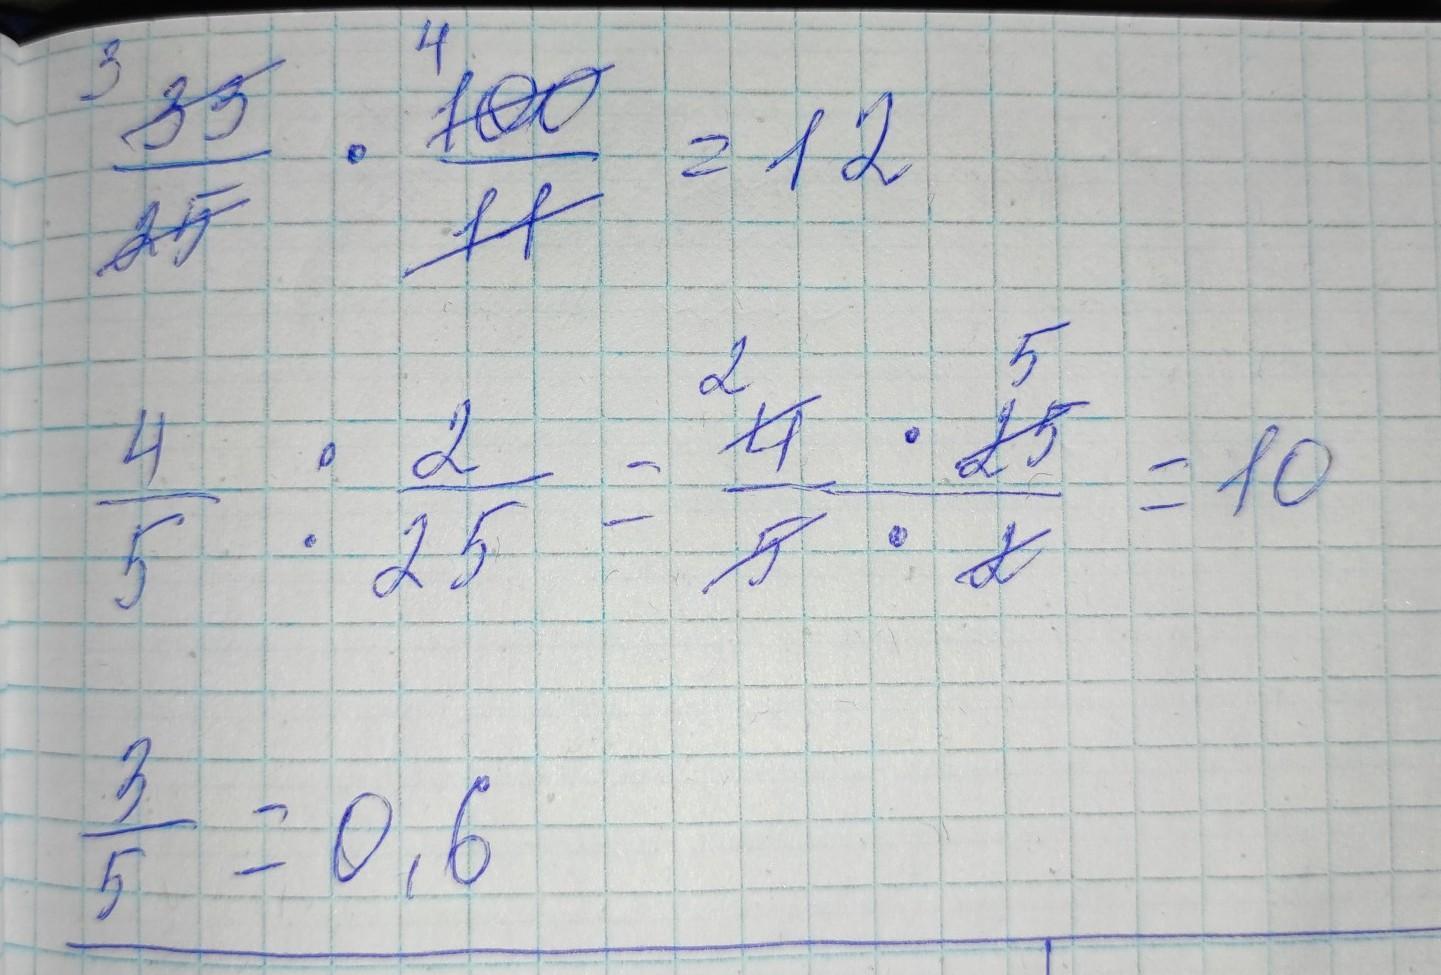 3 4
33/25 · 100/11 = 12
2 5
4/5 : 2/25 = 4 · 25 / 5 · 2 = 10
3/5 = 0,6